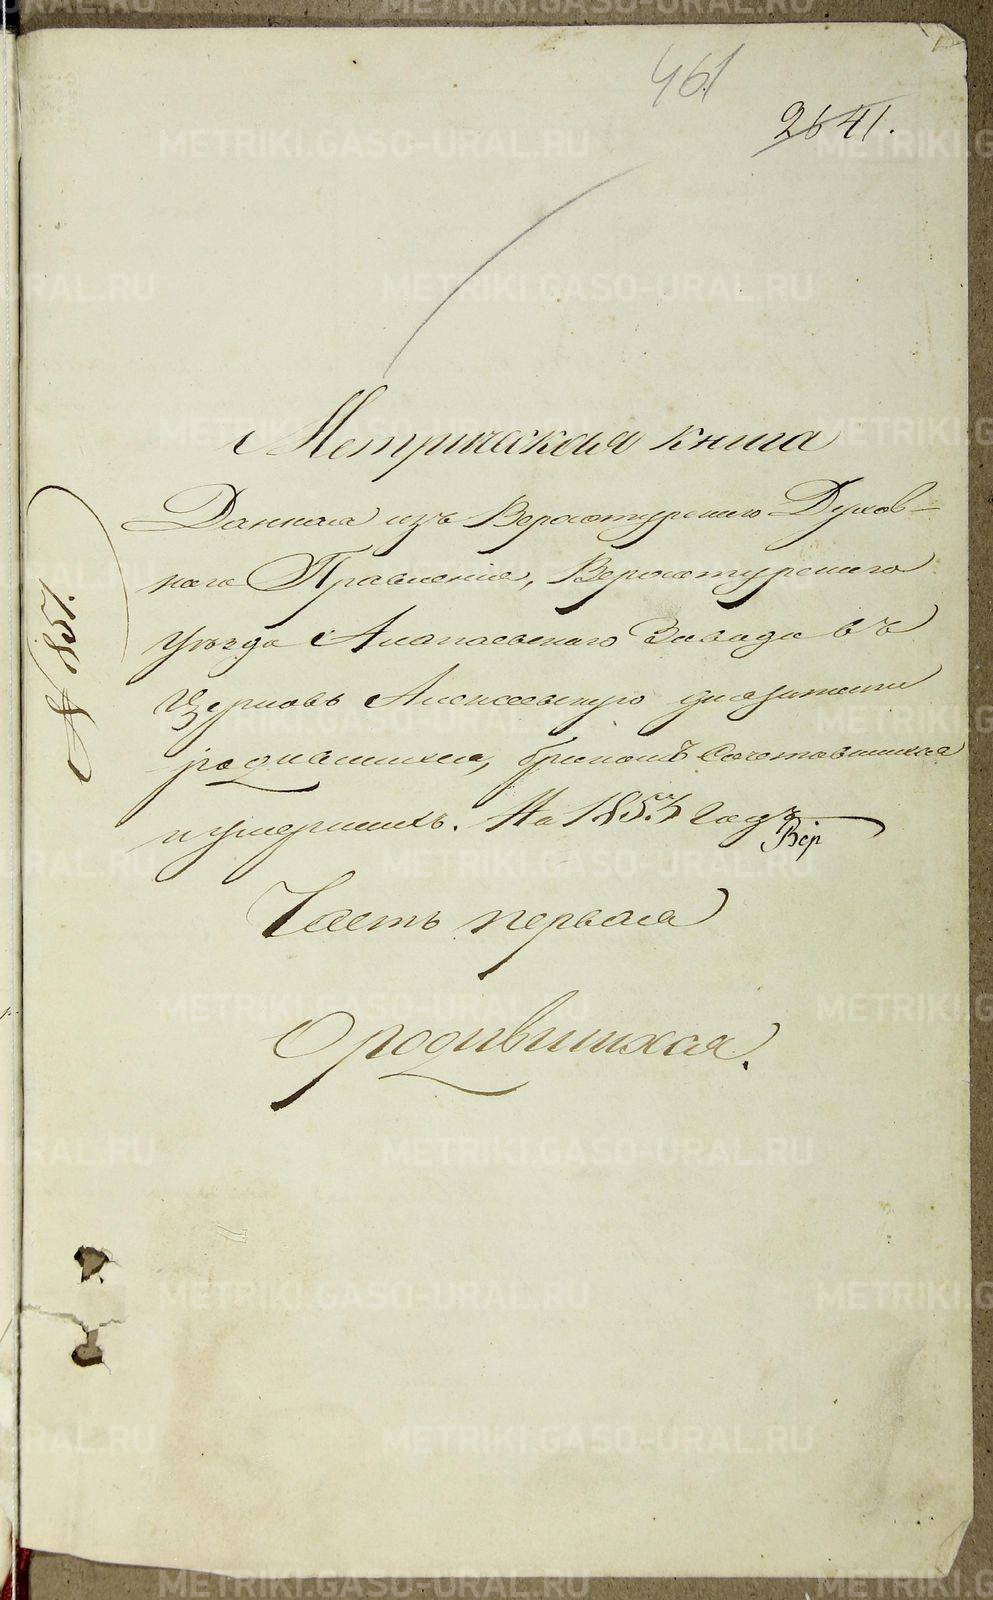 461
2641.
Метрическая книга
Данная изъ Верхотурскаго Духов-
наго Правленія, Верхотурскаго
уѣзда Алапаевскаго Завода въ
Церковь Алексѣевскую для записи
родившихся, бракомъ сочетавшихся
и умершихъ. На 1853 годъ
Вер
Часть первая
О родившихся.
№ 851.
METRIKI.GASO-URAL.RU